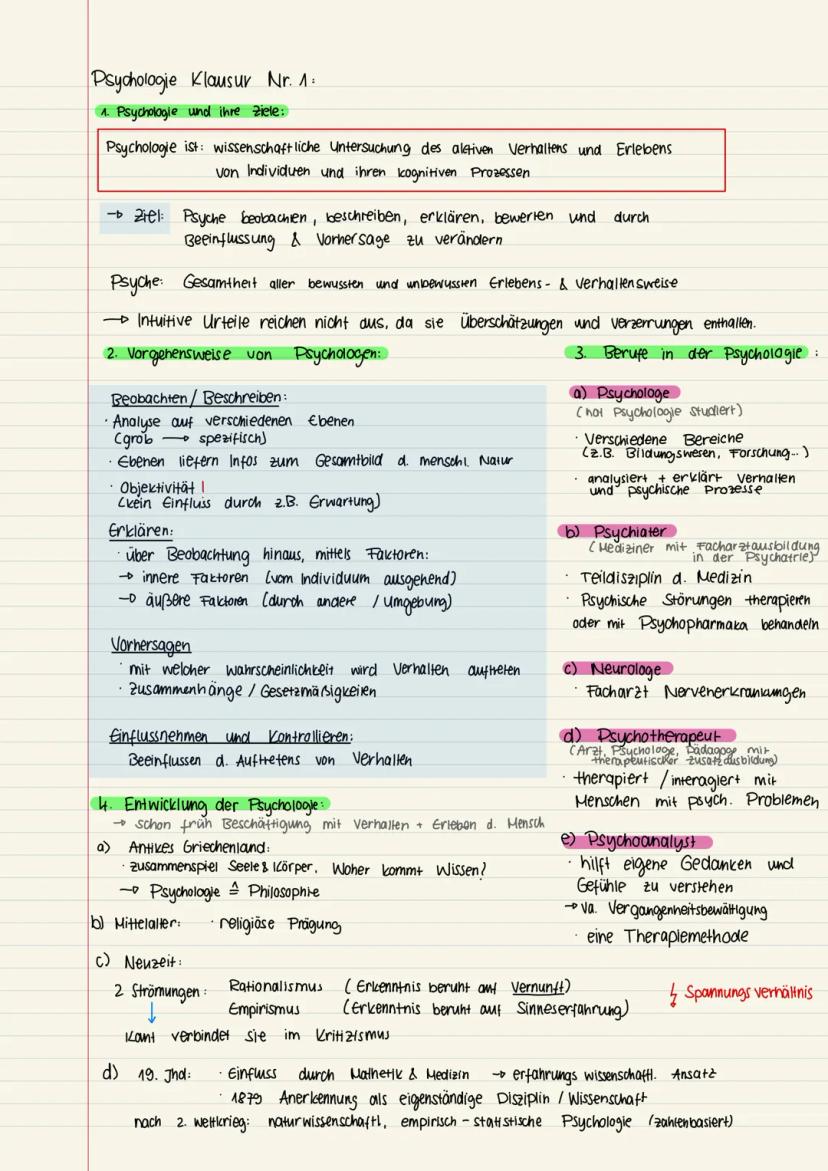 Psychologie Klausur Nr. 1:
1. Psychologie und ihre Ziele:
Psychologie ist: wissenschaftliche Untersuchung des aktiven Verhaltens und Erlebens
von Individuen und ihren kognitiven Prozessen
→ Ziel: Psyche beobachten, beschreiben, erklären, bewerten und durch
Beeinflussung & Vorhersage zu verändern
Psyche: Gesamtheit aller bewussten und unbewussten Erlebens- & Verhaltensweise
→ Intuitive Urteile reichen nicht aus, da sie Überschätzungen und Verzerrungen enthalten.
2. Vorgehensweise von Psychologen:
Beobachten / Beschreiben:
· Analyse auf verschiedenen Ebenen
(grob → spezifisch)
· Ebenen liefern Infos zum Gesamtbild d. menschl. Natur
· Objektivität !
(kein Einfluss durch z.B. Erwartung)
Erklären:
· über Beobachtung hinaus, mittels Faktoren:
→ innere Faktoren (vom Individuum ausgehend)
→ äußere Faktoren (durch andere / Umgebung)
Vorhersagen
· mit welcher Wahrscheinlichkeit wird Verhalten auftreten
· Zusammenhänge / Gesetzmäßigkeiten
Einflussnehmen und Kontrollieren:
Beeinflussen d. Auftretens von Verhalten
3. Berufe in der Psychologie :
a) Psychologe
(hat Psychologie studiert)
· Verschiedene Bereiche
(z.B. Bildungswesen, Forschung...)
· analysiert + erklärt Verhalten
und psychische Prozesse
b) Psychiater
(Mediziner mit Facharztausbildung
in der Psychatrie)
· Teildisziplin d. Medizin
· Psychische Störungen therapieren
oder mit Psychopharmaka behandeln
c) Neurologe
· Facharzt Nervenerkrankungen
d) Psychotherapeut
(Arzt, Psychologe, Pädagoge mit
therapeutischer Zusatzausbildung)
· therapiert / interagiert mit
Menschen mit psych. Problemen
e) Psychoanalyst
· hilft eigene Gedanken und
Gefühle zu verstehen
→ va. Vergangenheitsbewältigung
· eine Therapiemethode
4. Entwicklung der Psychologie:
→ schon früh Beschäftigung mit Verhalten + Erleben d. Mensch
a) Antikes Griechenland:
· Zusammenspiel Seele & Körper. Woher kommt Wissen?
→ Psychologie ≙ Philosophie
b) Mittelalter: · religiöse Prägung
c) Neuzeit:
2 Strömungen: Rationalismus (Erkenntnis beruht auf Vernunft)
Empirismus (Erkenntnis beruht auf Sinneserfahrung)
Spannungsverhältnis
Kant verbindet sie im Kritizismus
d) 19. Jhd: · Einfluss durch Mathetik & Medizin → erfahrungswissenschaftl. Ansatz
· 1879 Anerkennung als eigenständige Disziplin / Wissenschaft
nach 2. Weltkrieg: naturwissenschaftl, empirisch - statistische Psychologie (zahlenbasiert)